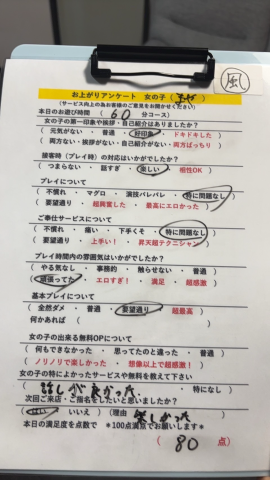 風
お上がりアンケート 女の子( )
(サービス向上の為お客様のご意見をお聞かせください)
本日のお遊び時間 ( 60 分コース)
女の子の第一印象や挨拶・自己紹介はありましたか?
( 元気がない ・ 普通 ・ 好印象 ・ ドキドキした )
( 両方ない・挨拶がない・自己紹介がない・両方ばっちり )
接客時(プレイ時)の対応はいかがでしたか?
( つまらない ・ 話すぎ ・ 楽しい ・ 相性OK )
プレイについて
( 不慣れ ・ マグロ ・ 演技バレバレ ・ 特に問題なし )
( 要望通り ・ 超興奮した ・ 最高にエロかった )
ご奉仕サービスについて
( 不慣れ ・ 痛い ・ 下手くそ ・ 特に問題なし )
( 要望通り ・ 上手い! ・ 昇天超テクニシャン )
プレイ時間内の雰囲気はいかがでしたか?
( やる気なし ・ 事務的 ・ 触らせない ・ 普通 )
( 頑張ってた ・ エロすぎ! ・ 満足 ・ 超感激 )
基本プレイについて
( 全然ダメ ・ 普通 ・ 要望通り ・ 超最高 )
何かあれば ( )
女の子の出来る無料OPについて
( 何もできなかった ・ 思ってたのと違った ・ 普通 )
( ノリノリで楽しかった ・ 想像以上で超感激! )
女の子の特によかったサービスや無料を教えて下さい
( 話しが良かった ・ 特になし )
次回ご来店・ご指名をしたいと思いましたか?
( はい ・ いいえ ) (理由 楽しかった )
本日の満足度を点数で *100点満点でお願いします*
( 80 点)